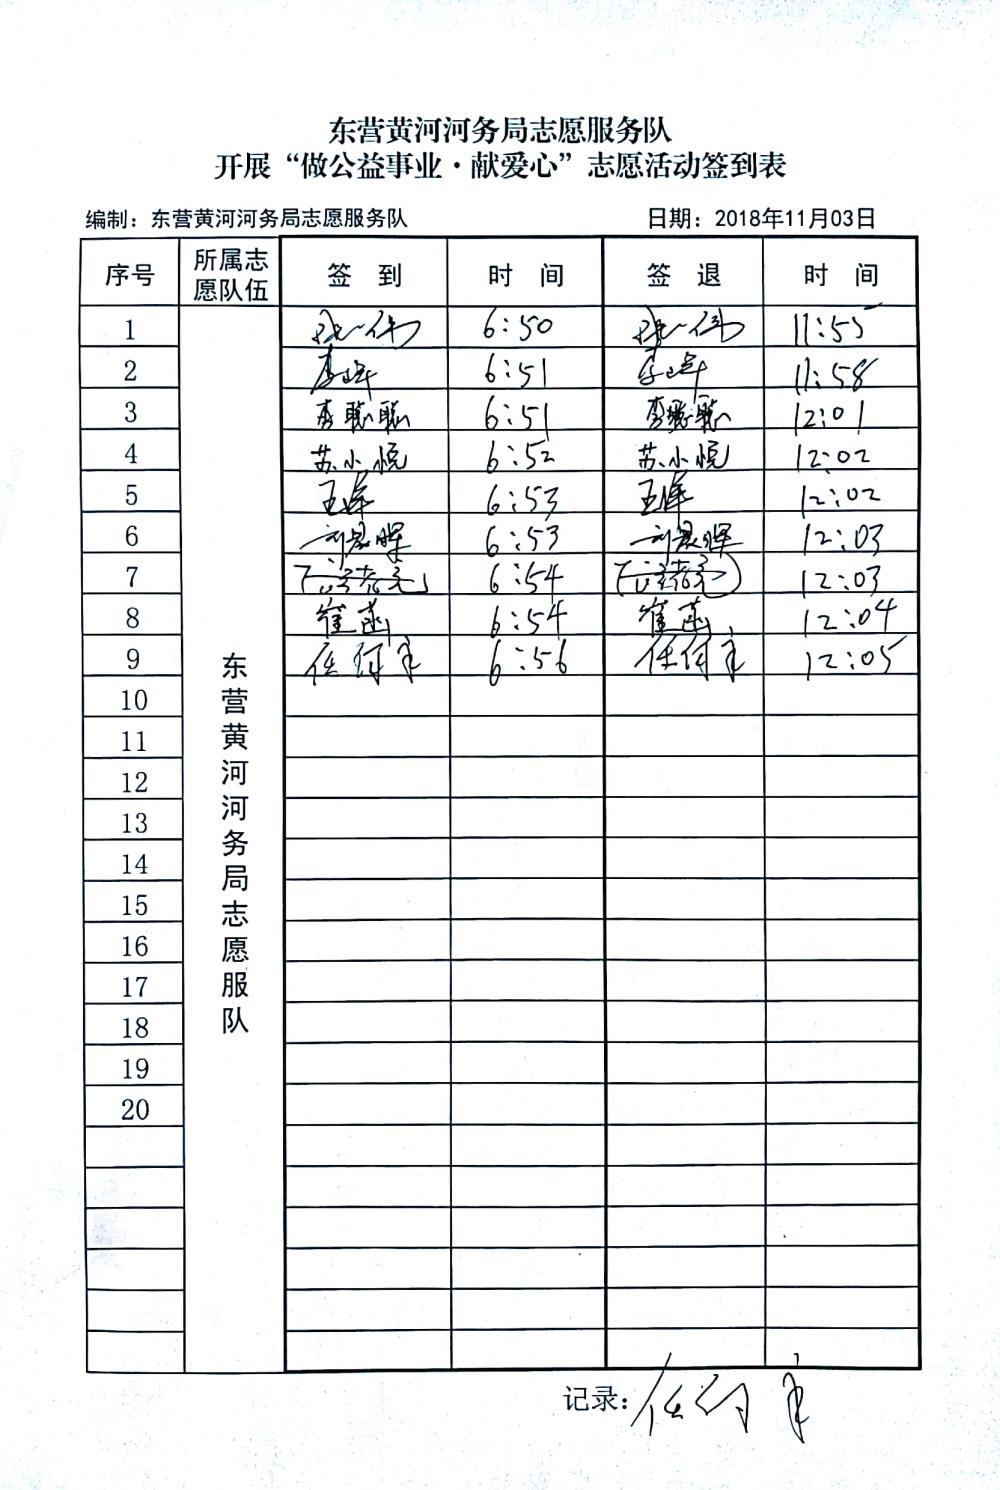 东营黄河河务局志愿服务队
开展“做公益事业·献爱心”志愿活动签到表
编制：东营黄河河务局志愿服务队 日期：2018年11月03日
序号 所属志愿队伍 签 到 时 间 签 退 时 间
东营黄河河务局志愿服队
1 6:50 11:55
2 6:51 11:58
3 李聪聪 6:51 李聪聪 12:01
4 苏小悦 6:52 苏小悦 12:02
5 6:53 12:02
6 刘晨晖 6:53 刘晨晖 12:03
7 6:54 12:03
8 崔菡 6:54 崔菡 12:04
9 6:56 12:05
10
11
12
13
14
15
16
17
18
19
20
记录：